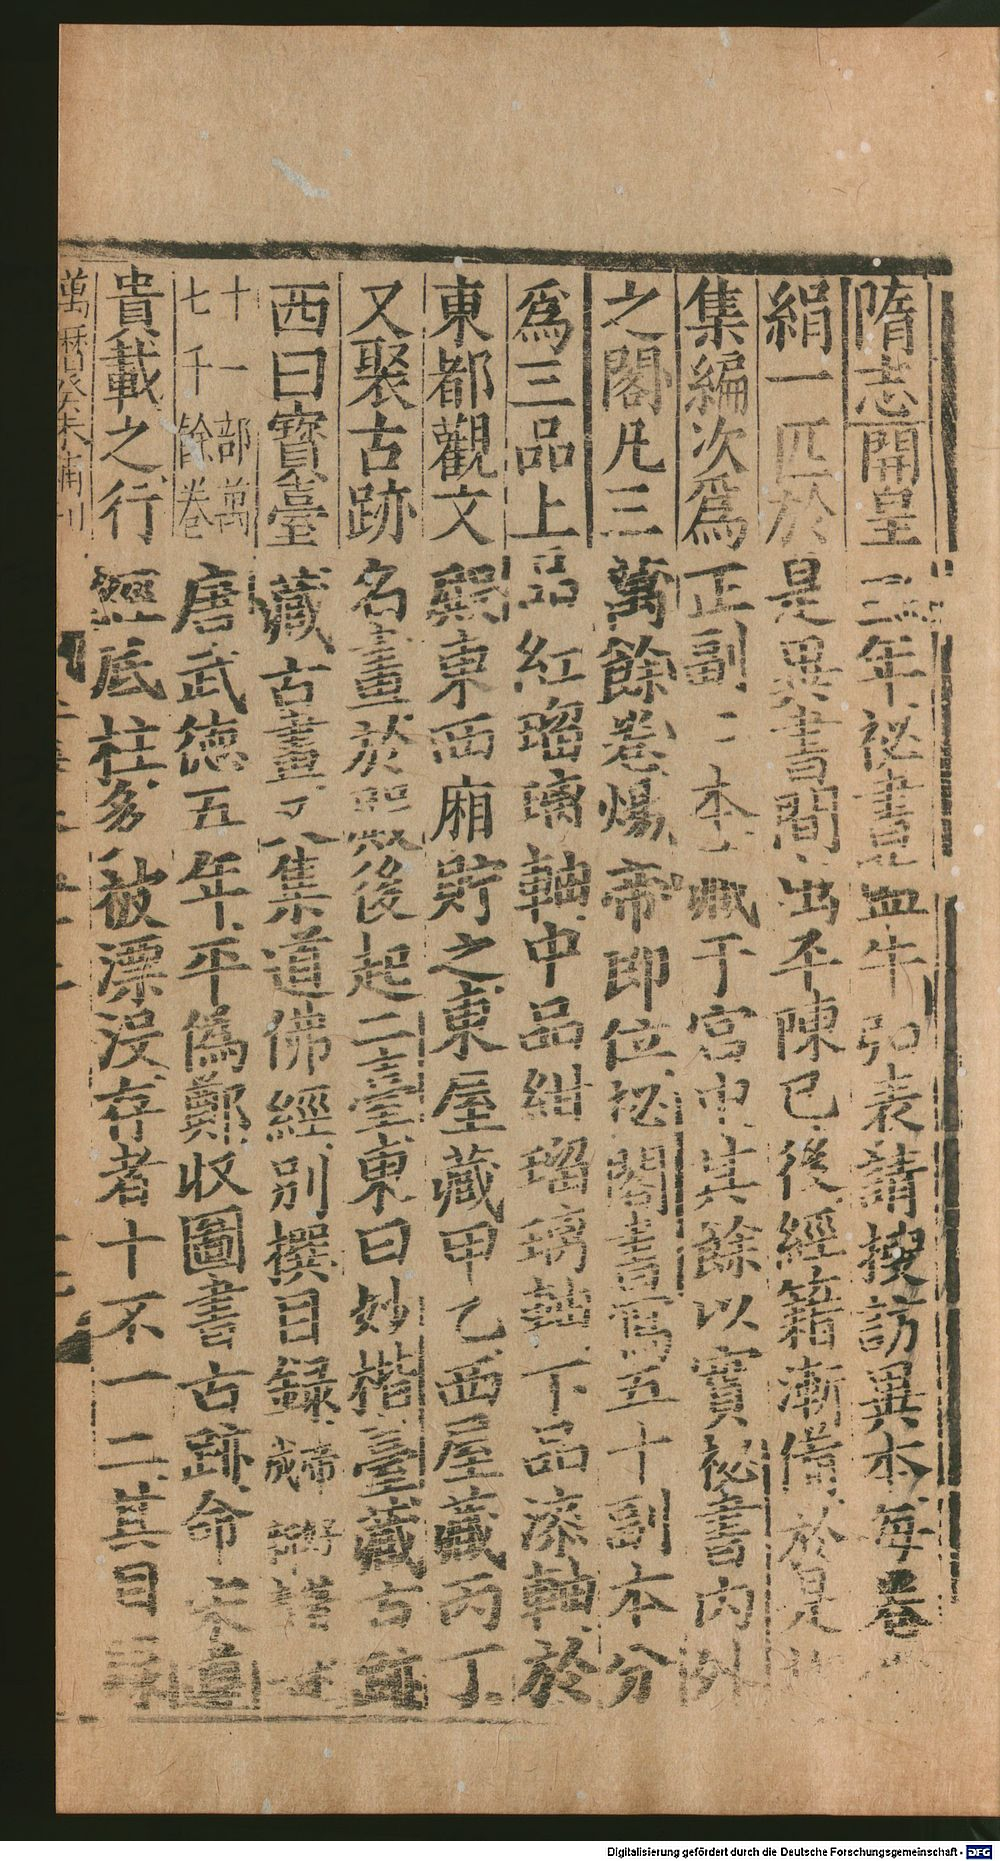 隋志開皇三年祕書監牛弘表請搜訪異本每卷
絹一匹於是異書間出平陳已後經籍漸備於是
集編次爲正副二本藏于宮中其餘以實祕書內外
之閣凡三萬餘卷煬帝即位祕閣書寫五十副本分
爲三品上品紅瑠璃軸中品紺瑠璃軸下品漆軸於
東都觀文殿東西廂貯之東屋藏甲乙西屋藏丙丁
又聚古跡名畫於殿後起二臺東曰妙楷臺藏古跡
西曰寳臺藏古畫又集道佛經別撰目録
十一部萬
七千餘卷唐武德五年平僞鄭收圖書古跡命宋遵
貴載之行經底柱多被漂沒存者十不一二其目録
萬曆癸未補刊
Digitalisierung gefördert durch die Deutsche Forschungsgemeinschaft - DFG